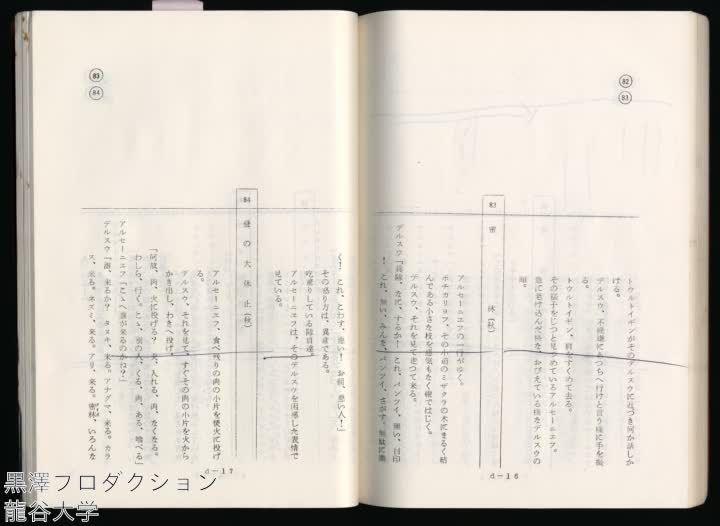 82
83
トウルトイギンがそのデルスウに近づき何か話しか
ける。
デルスウ、不機嫌にあっちへ行けと言う様に手を振
る。
トウルトイギン、肩をすくめて去る。
その様子をじっと見つめているアルセーニエフ。
急に老け込んだ様な、おびえている様なデルスウの
顔。
83 密林(秋)
アルセーニエフの一行がゆく。
ボチカリョフ、その小道のミザクラの木にまるく結
んである小さな枝を悪気もなく鞭ではじく。
デルスウ、それを見て走って来る。
デルスウ「兵隊、なに、するか! これ、パンツイ、掘い、目印
! これ、無い、みんな、パンツイ、さがす、無駄に働
d-16
83
84
く! これ、こわす、悪い! お前、悪い人!」
その怒り方は、異常である。
吃驚りしている隊員達。
アルセーニエフは、そのデルスウを困惑した表情で
見ている。
84 昼の大休止(秋)
アルセーニエフ、食べ残りの肉の小片を焚火に投げ
る。
デルスウ、それを見て、すぐその肉の小片を火から
かき出し、わきへ投げ、
「何故、肉、火に投げる? 火、入れる、肉、なくなる。
わしら、行く。こゝ、別の人、くる、肉、ある、喰べる」
アルセーニエフ「こゝへ誰が来るのかね?」
デルスウ「誰、来るか? タヌキ、来る。アナグマ、来る。カラ
ス、来る。ネズミ、来る。アリ、来る。密林、いろんな
d-17
黒澤プロダクション
龍谷大学